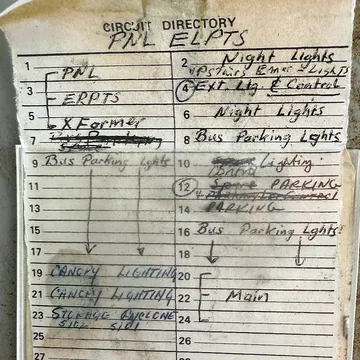 CIRCUIT DIRECTORY
PNL ELPTS
1
PNL
3
ERPTS
5
XFormer
7
9 Bus Parking Lghts
11
13
15
17
19 CANOPY LIGHTING
21 CANOPY LIGHTING
23 STORAGE ENCLOSE
25
2 Night Lights
Upstairs Emer - Lights
4 Ext. Ltg. & Control
6 Night Lights
8 Bus Parking Lghts
10 Lighting
12 Spare PARKING
14 PARKING
16 Bus Parking Lghts
18
20
22 Main
24
26